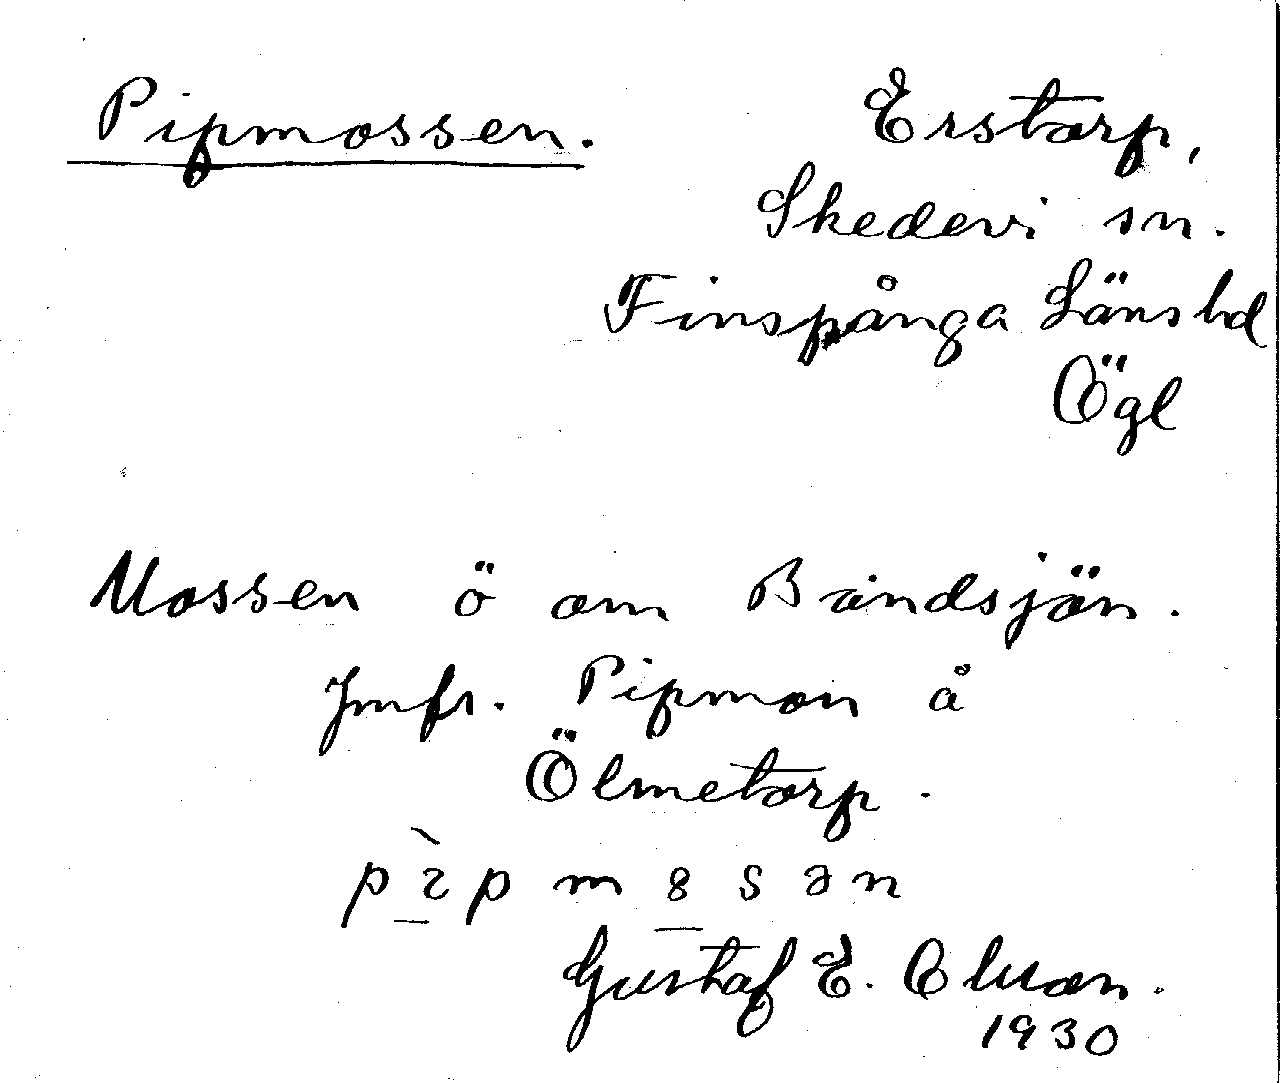 Pipmossen. Erstorp,
Skedevi sn.
Finspånga Länshd
Ögl
Mossen ö om Brändsjön.
Jmfr. Pipmon å
Ölmetorp.
Gustaf E. Olsson.
1930